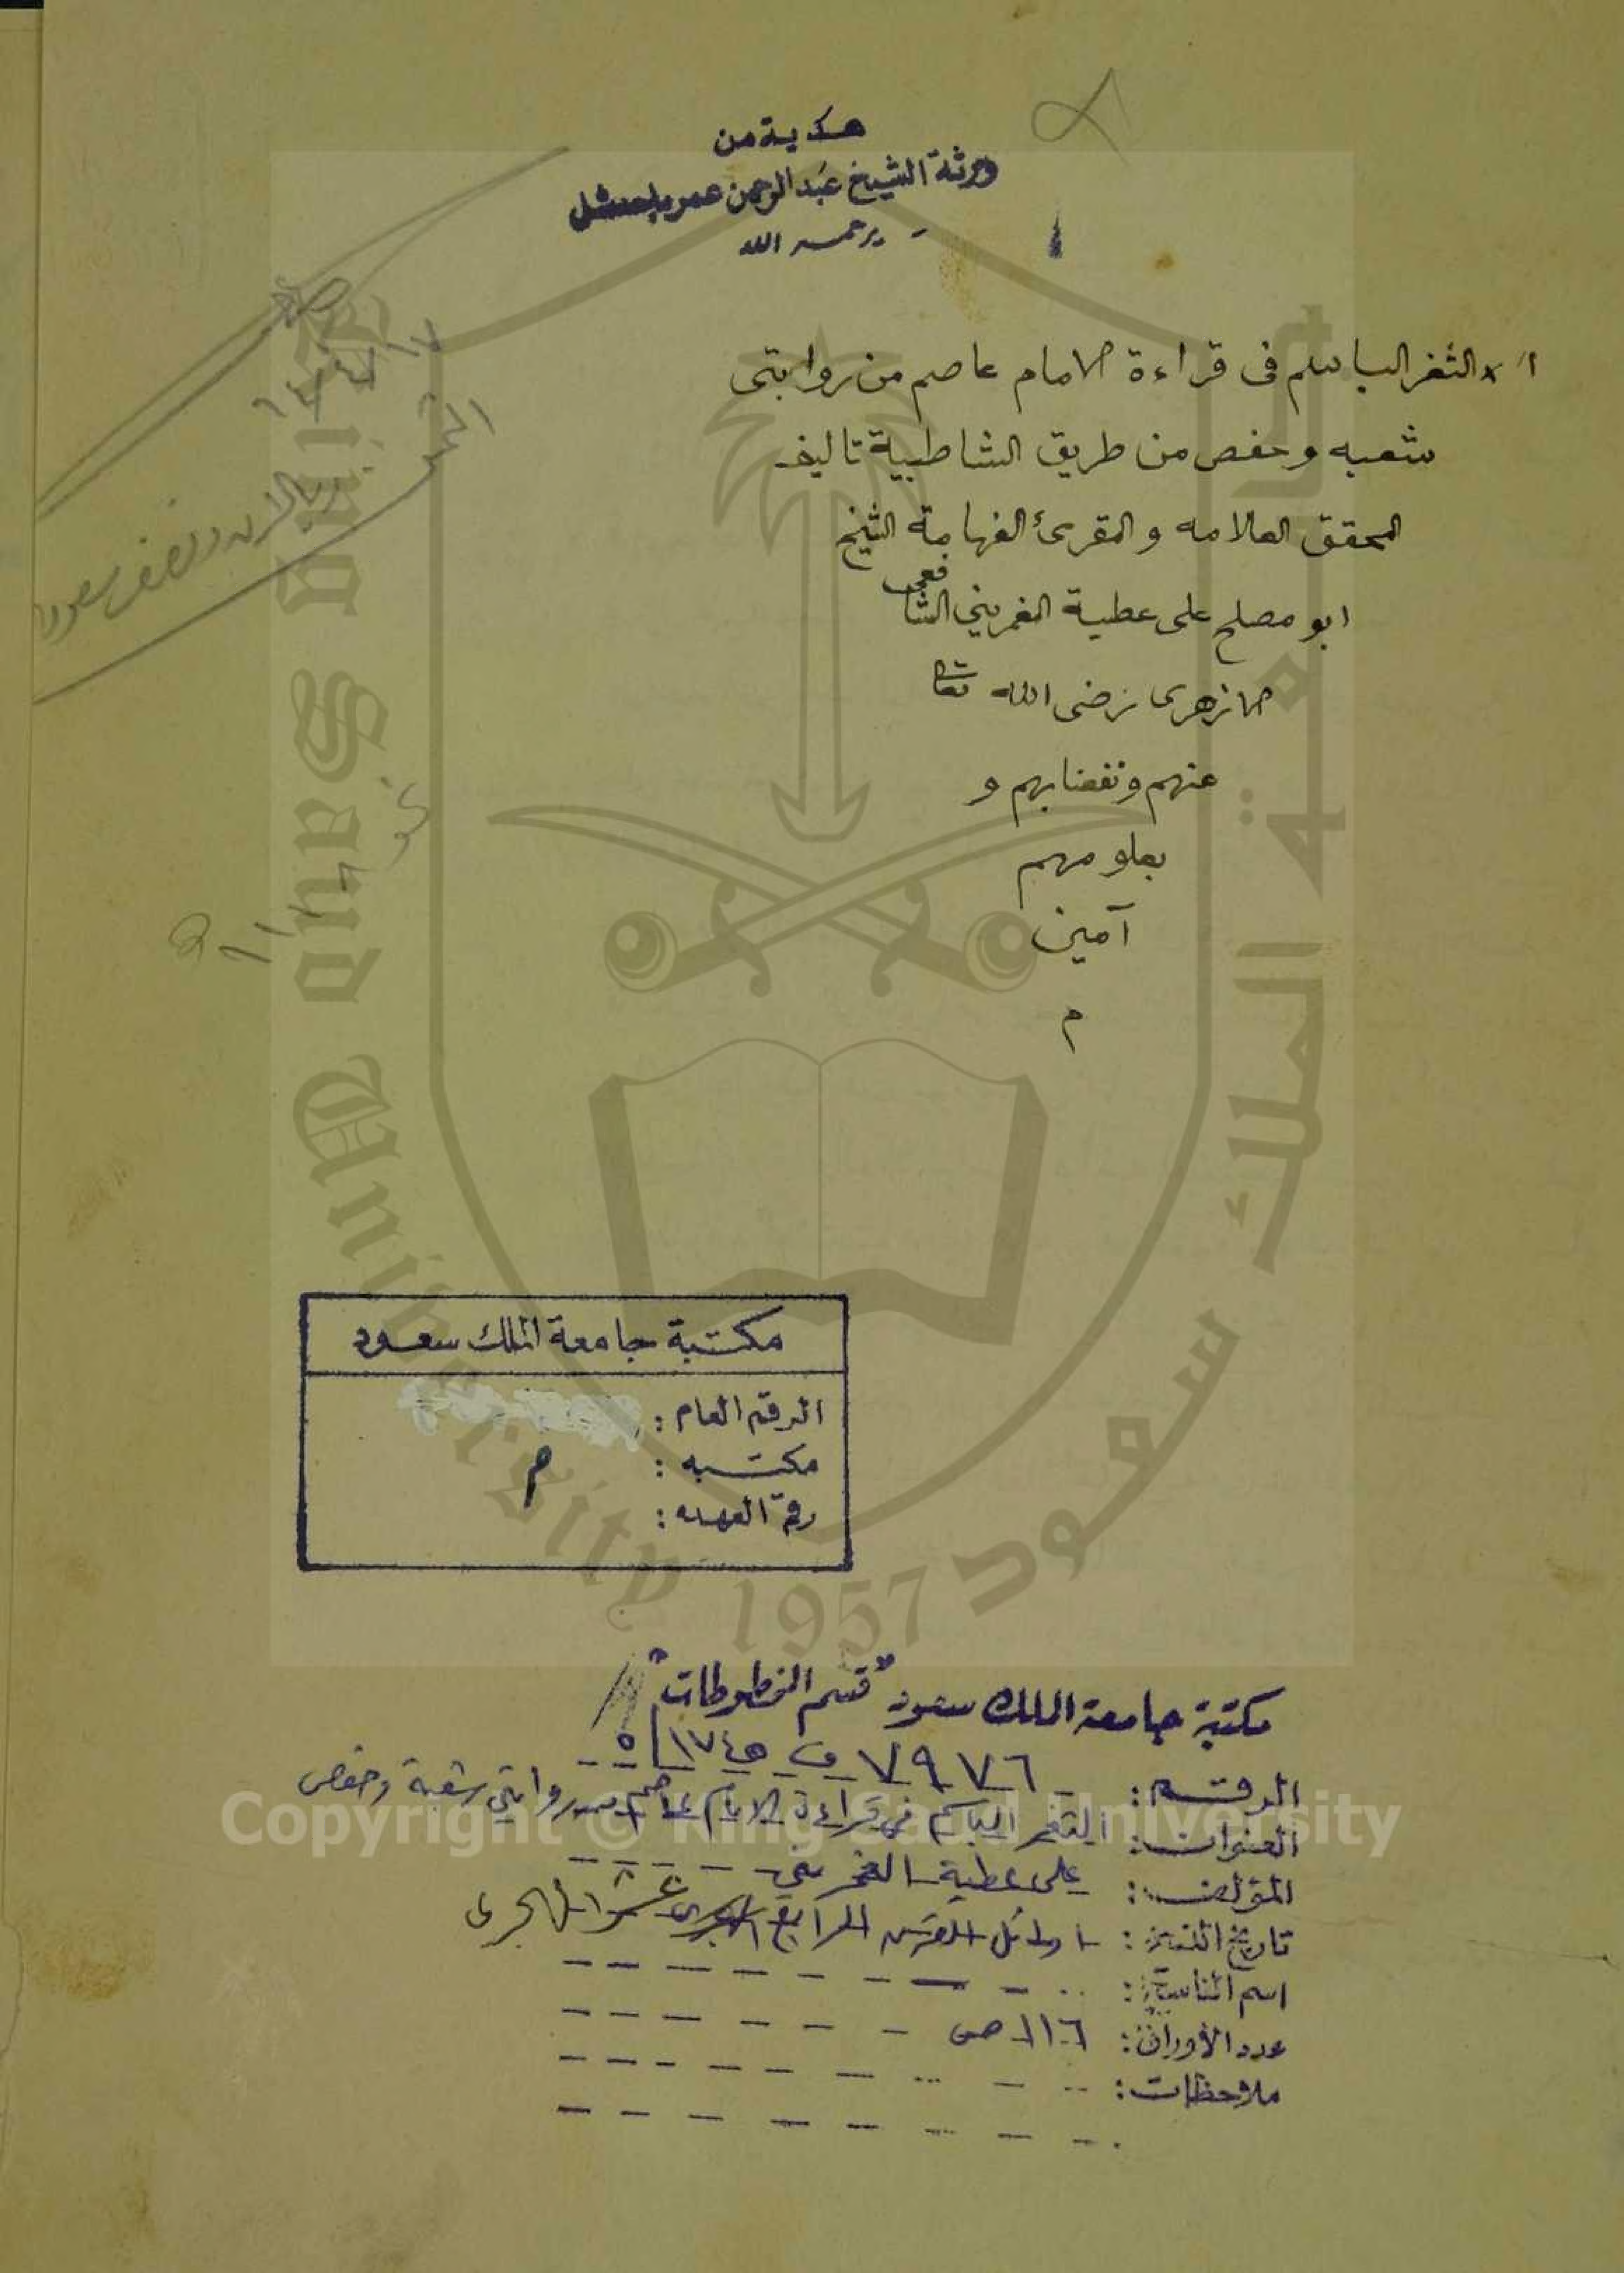 هدية من
ورثة الشيخ عبد الرحمن عمر باحنشل
يرحمه الله
الثغر الباسم فى قراءة الامام عاصم من روايتى
شعبه وحفص من طريق الشاطبية تاليف
المحقق العلامه والمقرئ الفهامة الشيخ
ابو مصلح على عطية الغمريني الشافعى
الازهرى رضى الله تعالى
عنهم ونفعنا بهم و
بعلومهم
آمين
م
مكتبة جامعة الملك سعود
الرقم العام:
مكتبه: م
رقم العهده:
مكتبة جامعة الملك سعود "قسم المخطوطات"
الرقم: ٧٩٧٦ ف ١٧٤٥/٥
العنوان: الثغر الباسم في قراءة الإمام عاصم من روايتي شعبة وحفص
المؤلف: علي عطية الغمريني
تاريخ النسخ: اوائل القرن الرابع عشر الهجرى
اسم الناسخ:
عدد الأوراق: ١١٦ ص
ملاحظات:
King Saud University 1957
جامعة الملك سعود
Copyright © King Saud University